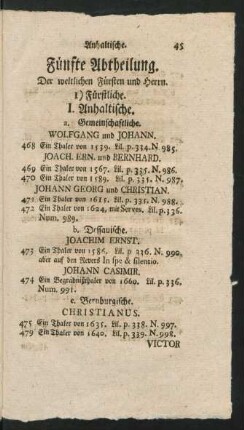 Anhaltische. 45
Fünfte Abtheilung.
Der weltlichen Fürsten und Herrn.
1) Fürstliche.
I. Anhaltische.
a. Gemeinschaftliche.
WOLFGANG und JOHANN.
468 Ein Thaler von 1539. Lil. p. 334. N. 985.
JOACH. ERN. und BERNHARD.
469 Ein Thaler von 1567. Lil. p. 335. N. 986.
470 Ein Thaler von 1589. Lil. p. 231. N. 987.
JOHANN GEORG und CHRISTIAN.
471 Ein Thaler von 1615. Lil. p. 335. N. 988.
472 Ein Thaler von 1624. mit Serves. Lil. p. 336.
Num. 989.
b. Dessauische.
JOACHIM ERNST.
473 Ein Thaler von 1586. Lil. p 236. N. 990,
aber auf den Revers In spe & silentio.
JOHANN CASIMIR.
474 Ein Begräbnißthaler von 1660. Lil. p. 336.
Num. 991.
c. Bernburgische.
CHRISTIANUS.
475 Ein Thaler von 1635. Lil. p. 338. N. 997.
479 Ein Thaler von 1640. Lil. p. 339. N. 998.
VICTOR